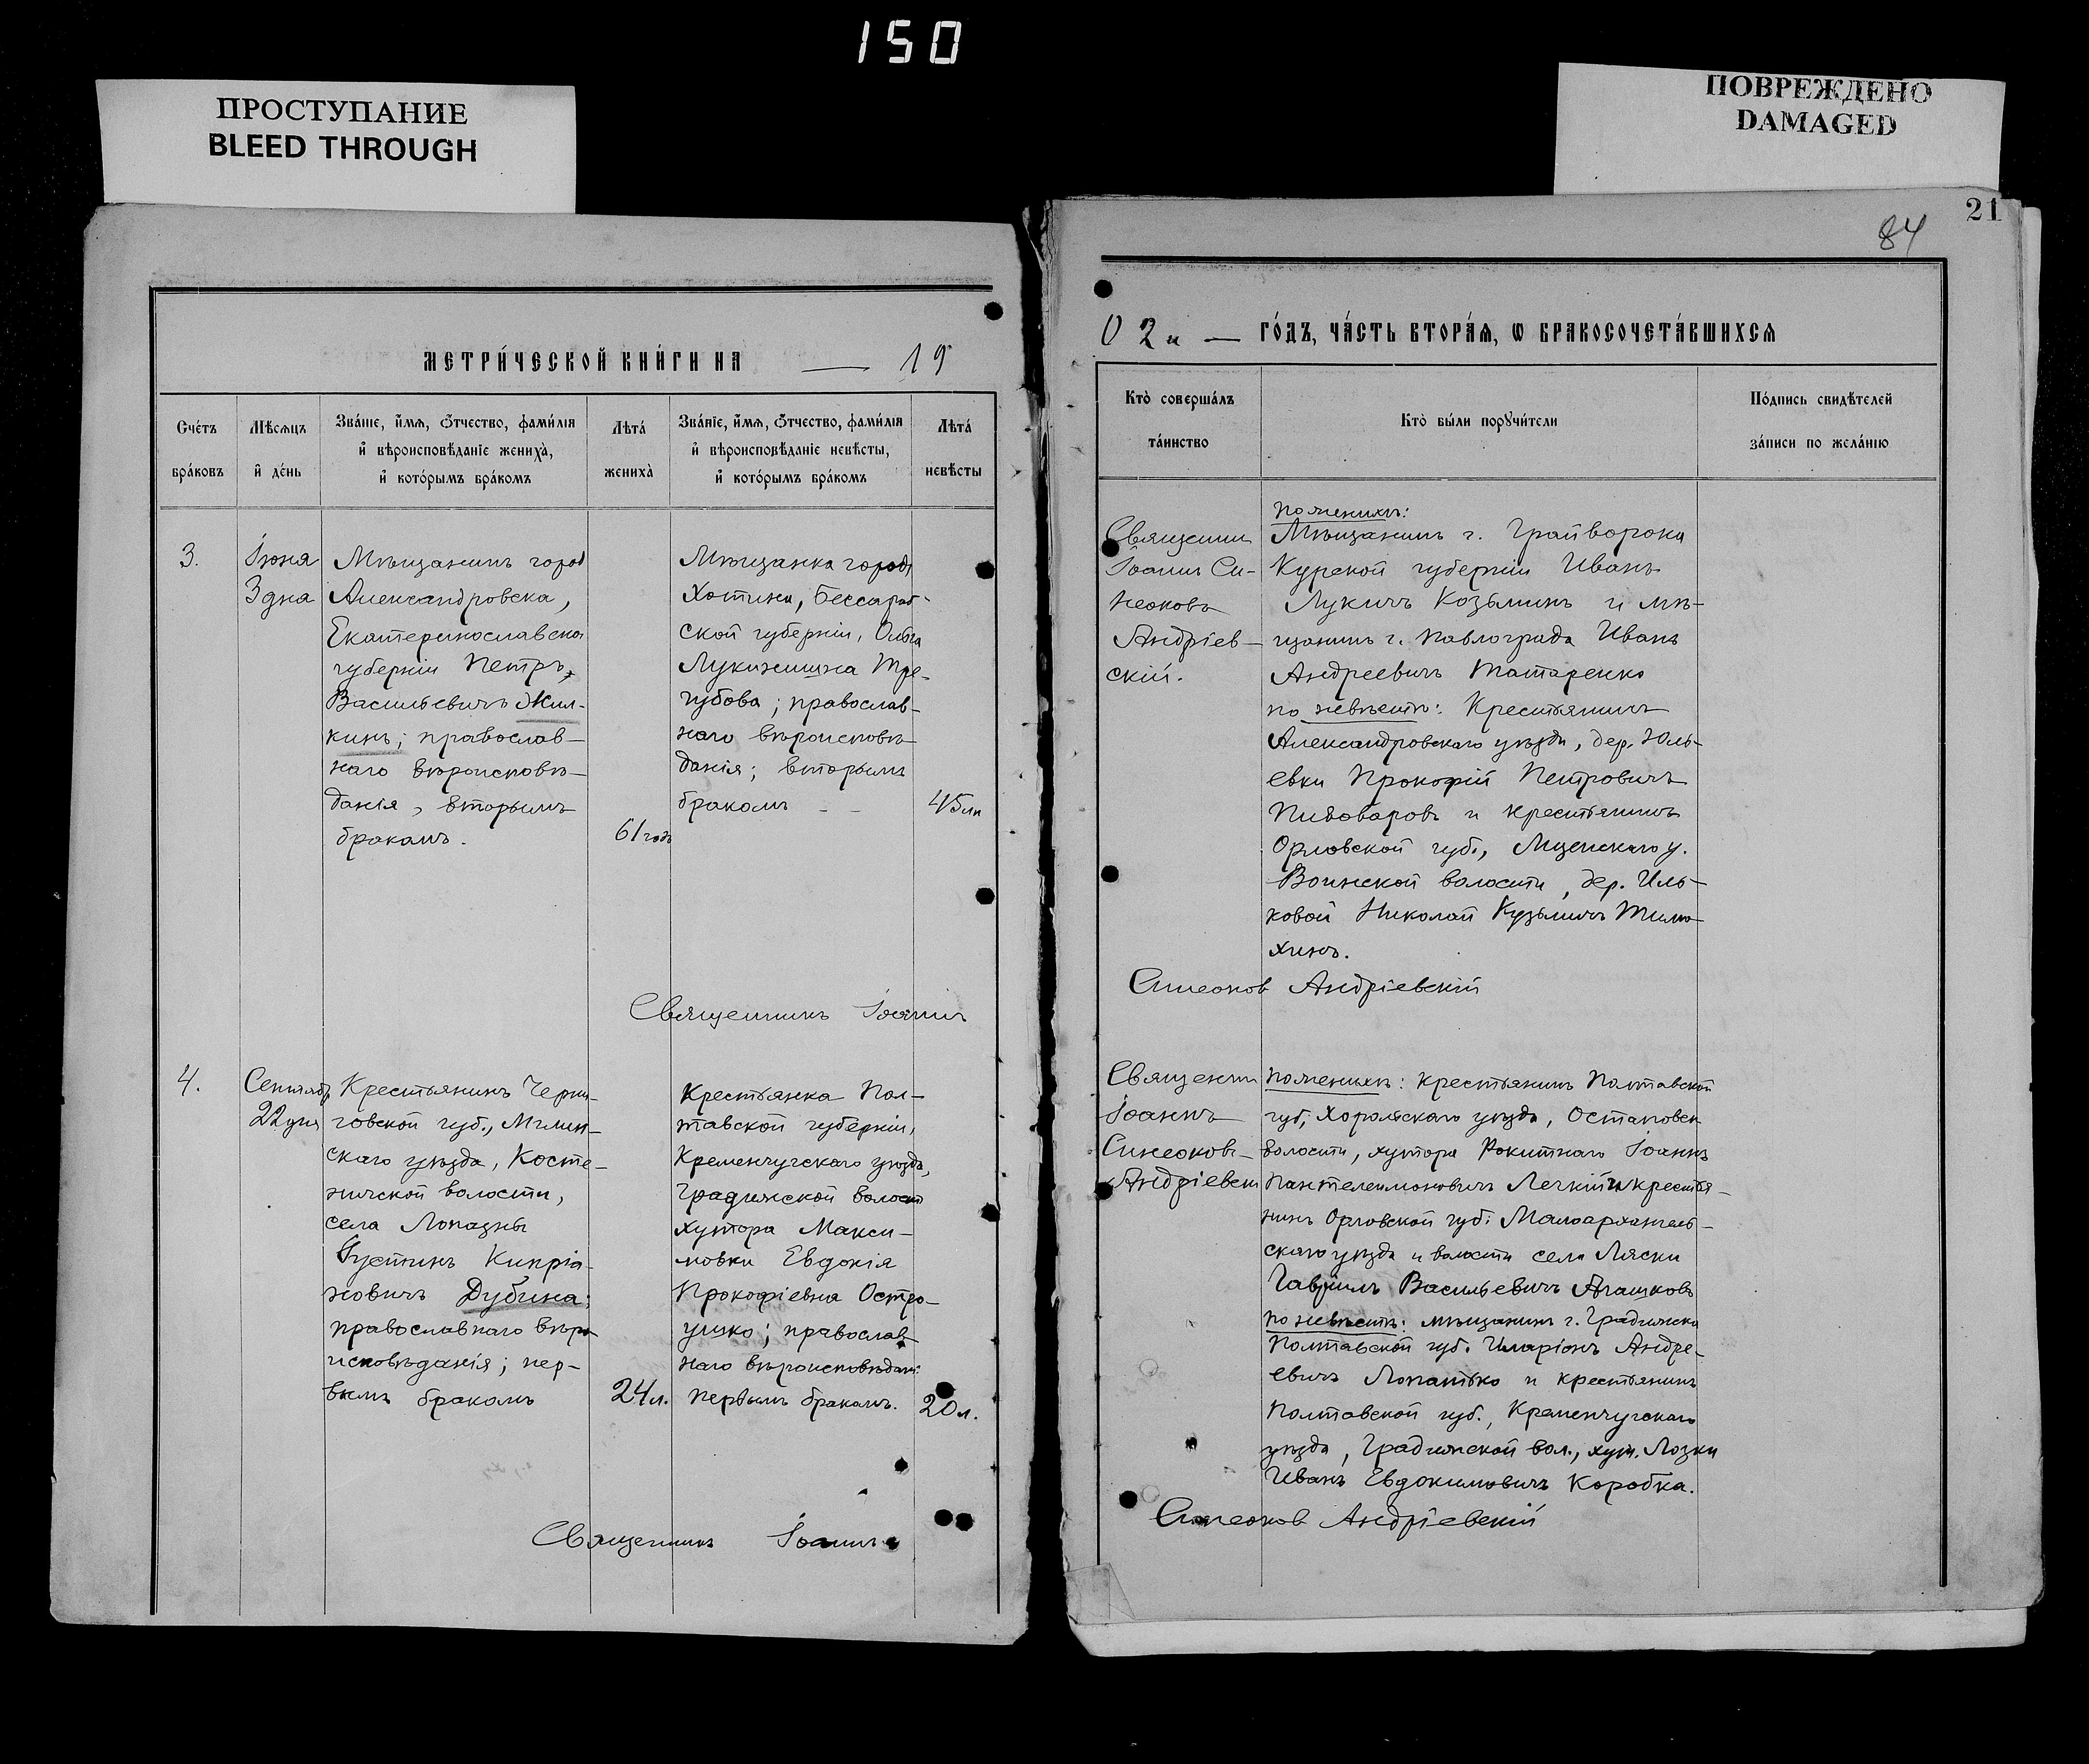 150
ПРОСТУПАНИЕ
BLEED THROUGH
ПОВРЕЖДЕНО
DAMAGED
21
84
МЕТРИ́ЧЕСКОЙ КНИ́ГИ НА — 19
Сче́тъ бра́ковъ
Мѣ́сяцъ и де́нь
Зва́нїе, и҆́мѧ, ѻ҆́тчество, фами́лїѧ
и҆ вѣроисповѣ́данїе жениха̀,
и҆ кото́рымъ бра́комъ
Лѣта̀ жениха̀
Зва́нїе, и҆́мѧ, ѻ҆́тчество, фами́лїѧ
и҆ вѣроисповѣ́данїе невѣ́сты,
и҆ кото́рымъ бра́комъ
Лѣта̀ невѣ́сты
3.
Іюня
3 дня
Мѣщанинъ город
Александровска,
Екатеринославской
губерніи Петръ
Васильевичъ Жил-
кинъ; православ-
наго вѣроисповѣ-
данія, вторымъ
бракомъ.
61 годъ
Мѣщанка города
Хотина, Бессараб-
ской губерніи, Ольга
Лукинишна Тре-
губова; православ-
наго вѣроисповѣ-
данія; вторымъ
бракомъ - -
45 лѣ
Священникъ Іоаннъ
4.
Сентябр
22 дня
Крестьянинъ Черни-
говской губ., Мглин-
скаго уѣзда, Косте-
ничской волости,
села Лопазны
Іустинъ Кипріа-
новичъ Дубина;
православнаго вѣро-
исповѣданія; пер-
вымъ бракомъ
24 л.
Крестьянка Пол-
тавской губерніи,
Кременчугскаго уѣзда,
Градижской волости
хутора Макси-
мовки Евдокія
Прокофіевна Остро-
ушко; православ
наго вѣроисповѣдан:
первымъ бракомъ.
20 л.
Священникъ Іоаннъ
02 й — ГО́ДЪ, ЧА́СТЬ ВТОРА́Ѧ, Ѡ БРАКОСОЧЕТА́ВШИХСѦ
Кто̀ соверша́лъ
та́инство
Кто̀ бы́ли порꙋчи́тели
По́дпись свидѣ́телей
за́писи по жела́нїю
Священни
Іоаннъ Си-
меоновъ
Андріев-
скій.
По женихѣ:
Мѣщанинъ г. Грайворона
Курской губерніи Иванъ
Лукичъ Козьминъ и мѣ-
щанинъ г. Павлограда Иванъ
Андреевичъ Татаренко
по невѣстѣ: Крестьянинъ
Александровскаго уѣзда, дер. Юль-
евки Прокофій Петровичъ
Пивоваровъ и крестьянинъ
Орловской губ., Мценскаго у.
Воинской волости, дер. Иль-
ковой Николай Кузьмичъ Тимо-
хинъ.
Симеонов Андріевскій
Священни
Іоаннъ
Симеоновъ-
Андріевскі
По женихѣ: крестьянинъ Полтавской
губ, Хорольскаго уѣзда, Остаповск
волости, хутора Рокитнаго Іоаннъ
Пантелеимоновичъ Легкій и крестья-
нинъ Орловской губ. Малоархангель-
скаго уѣзда и волости села Ляски
Гавріилъ Васильевичъ Агашковъ
по невѣстѣ: мѣщанинъ г. Градижска
Полтавской губ. Иларіонъ Андре-
евичъ Лопатько и крестьянинъ
Полтавской губ., Кременчугскаго
уѣзда, Градижской вол., хут. Лозки
Иванъ Евдокимовичъ Коробка.
Симеонов Андріевскій